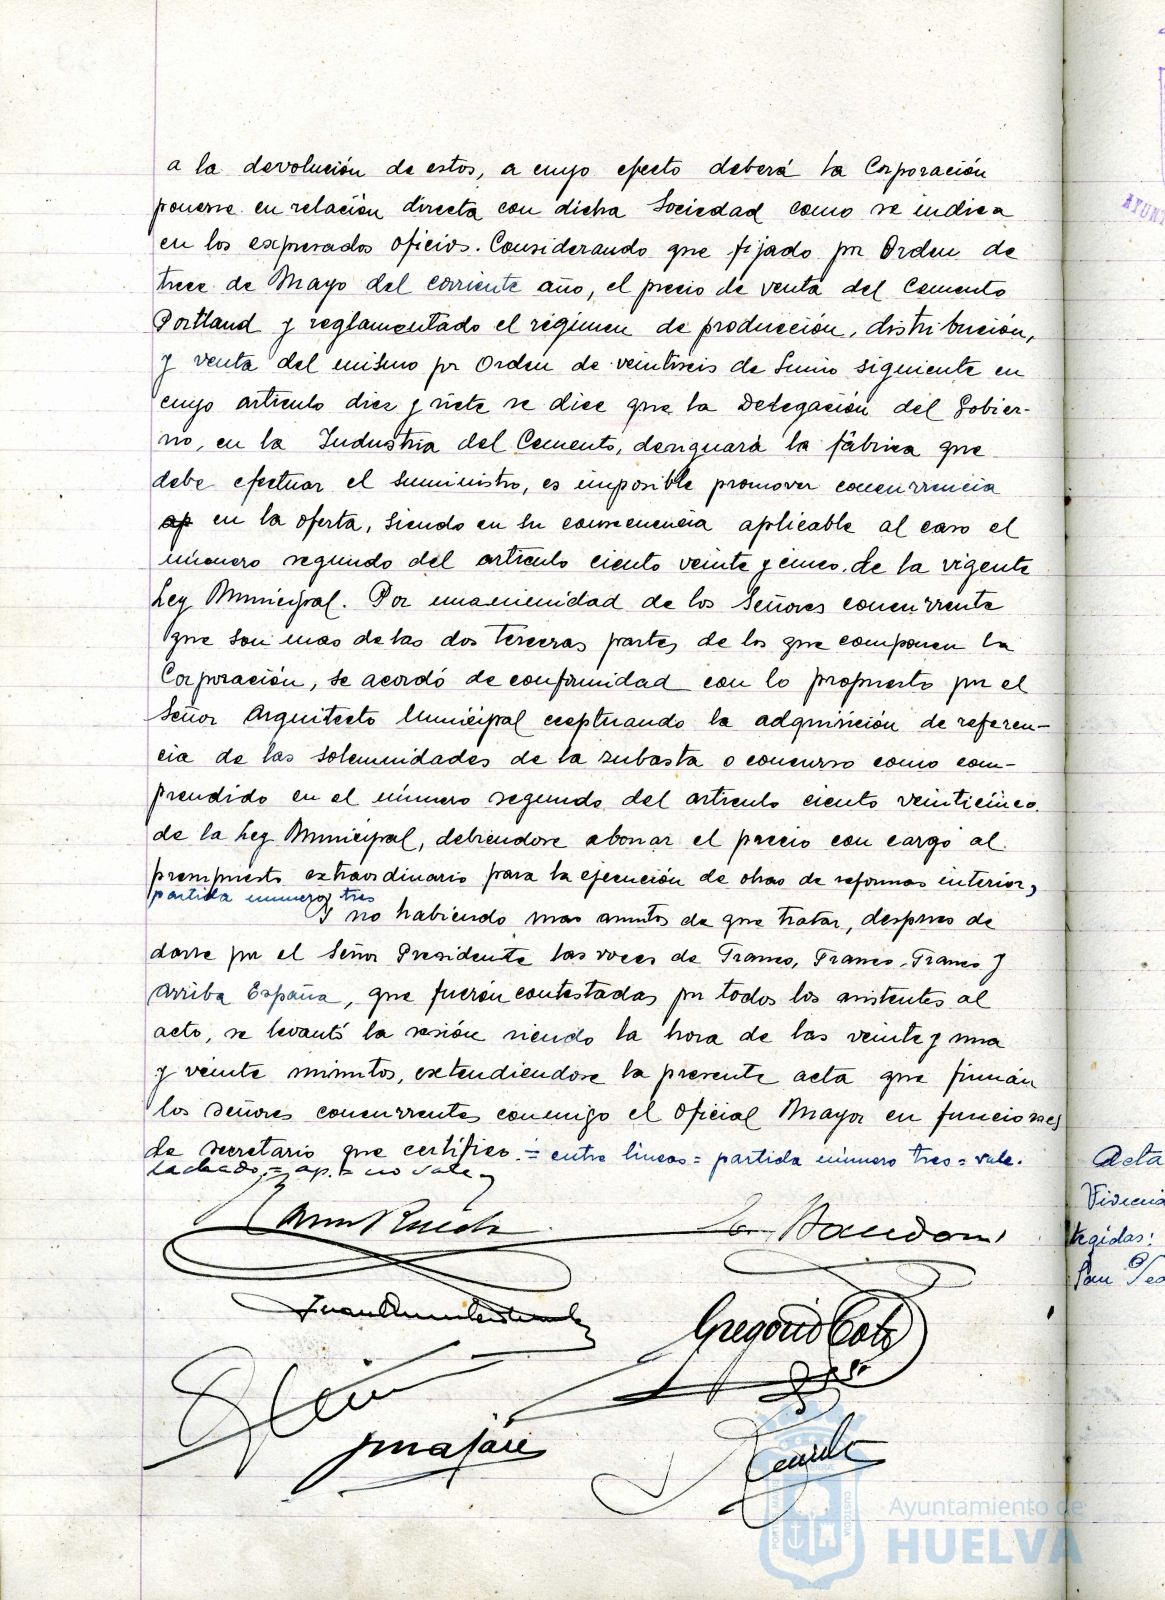 a la devolución de estos, a cuyo efecto deberá la Corporación
ponerse en relación directa con dicha Sociedad como se indica
en los expresados oficios. Considerando que fijado por Orden de
trece de Mayo del corriente año, el precio de venta del Cemento
Portland y reglamentado el régimen de producción, distribución,
y venta del mismo por Orden de veintiseis de Junio siguiente en
cuyo artículo diez y siete se dice que la Delegación del Gobier-
no, en la Industria del Cemento, designará la fábrica que
debe efectuar el suministro, es imposible promover concurrencia
ap en la oferta, siendo en su consecuencia aplicable al caso el
número segundo del artículo ciento veinte y cinco de la vigente
Ley Municipal. Por unanimidad de los Señores concurrente
que son mas de las dos terceras partes de los que componen la
Corporación, se acordó de conformidad con lo propuesto por el
Señor Arquitecto Municipal exceptuando la adquisición de referen-
cia de las solemnidades de la subasta o concurso como com-
prendido en el número segundo del artículo ciento veinticinco
de la Ley Municipal, debiendose abonar el precio con cargo al
presupuesto extraordinario para la ejecución de obras de reformas interior,
partida numero tres
Y no habiendo mas asuntos de que tratar, despues de
darse por el Señor Presidente las voces de Franco, Franco, Franco y
Arriba España, que fueron contestadas por todos los asistentes al
acto, se levantó la sesión siendo la hora de las veinte y una
y veinte minutos, extendiendose la presente acta que firman
los señores concurrentes conmigo el Oficial Mayor en funciones
de secretario que certifico.= entre líneas = partida número tres = vale.
tachado = ap. = no vale
Gregorio
Acta
Vivien
tegidas:
San
Ayuntamiento de
HUELVA